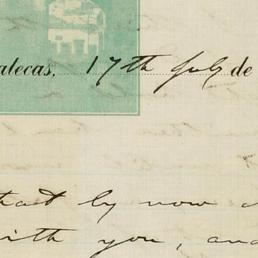 alecas, 17th July de
that by now
with you, and